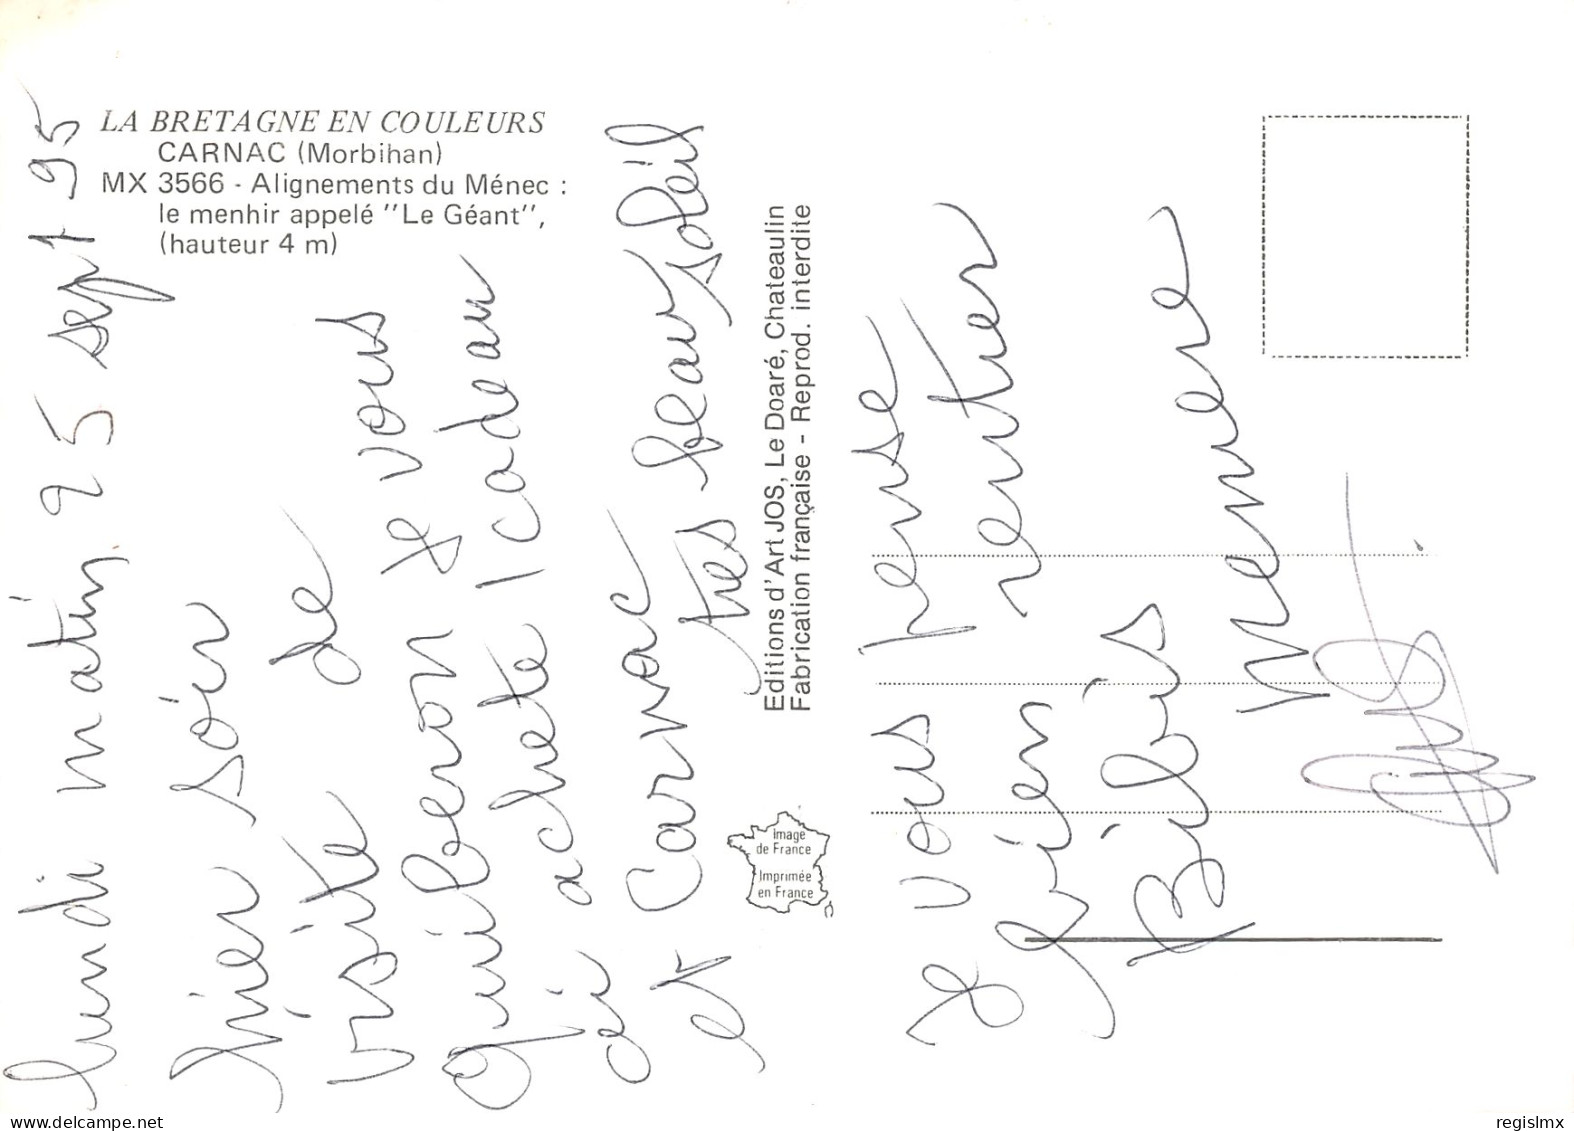 LA BRETAGNE EN COULEURS
CARNAC (Morbihan)
MX 3566 - Alignements du Ménec :
le menhir appelé "Le Géant",
(hauteur 4 m)
lundi matin 25 sept 95
hier soir
visite de
Quiberon je vous
ai achete 1 cadeau
a Carnac
et tres beau soleil
Editions d'Art JOS, Le Doaré, Chateaulin
Fabrication française - Reprod. interdite
Image
de France
Imprimée
en France
je vous pense
bien
Bisous
Memere
regislmx